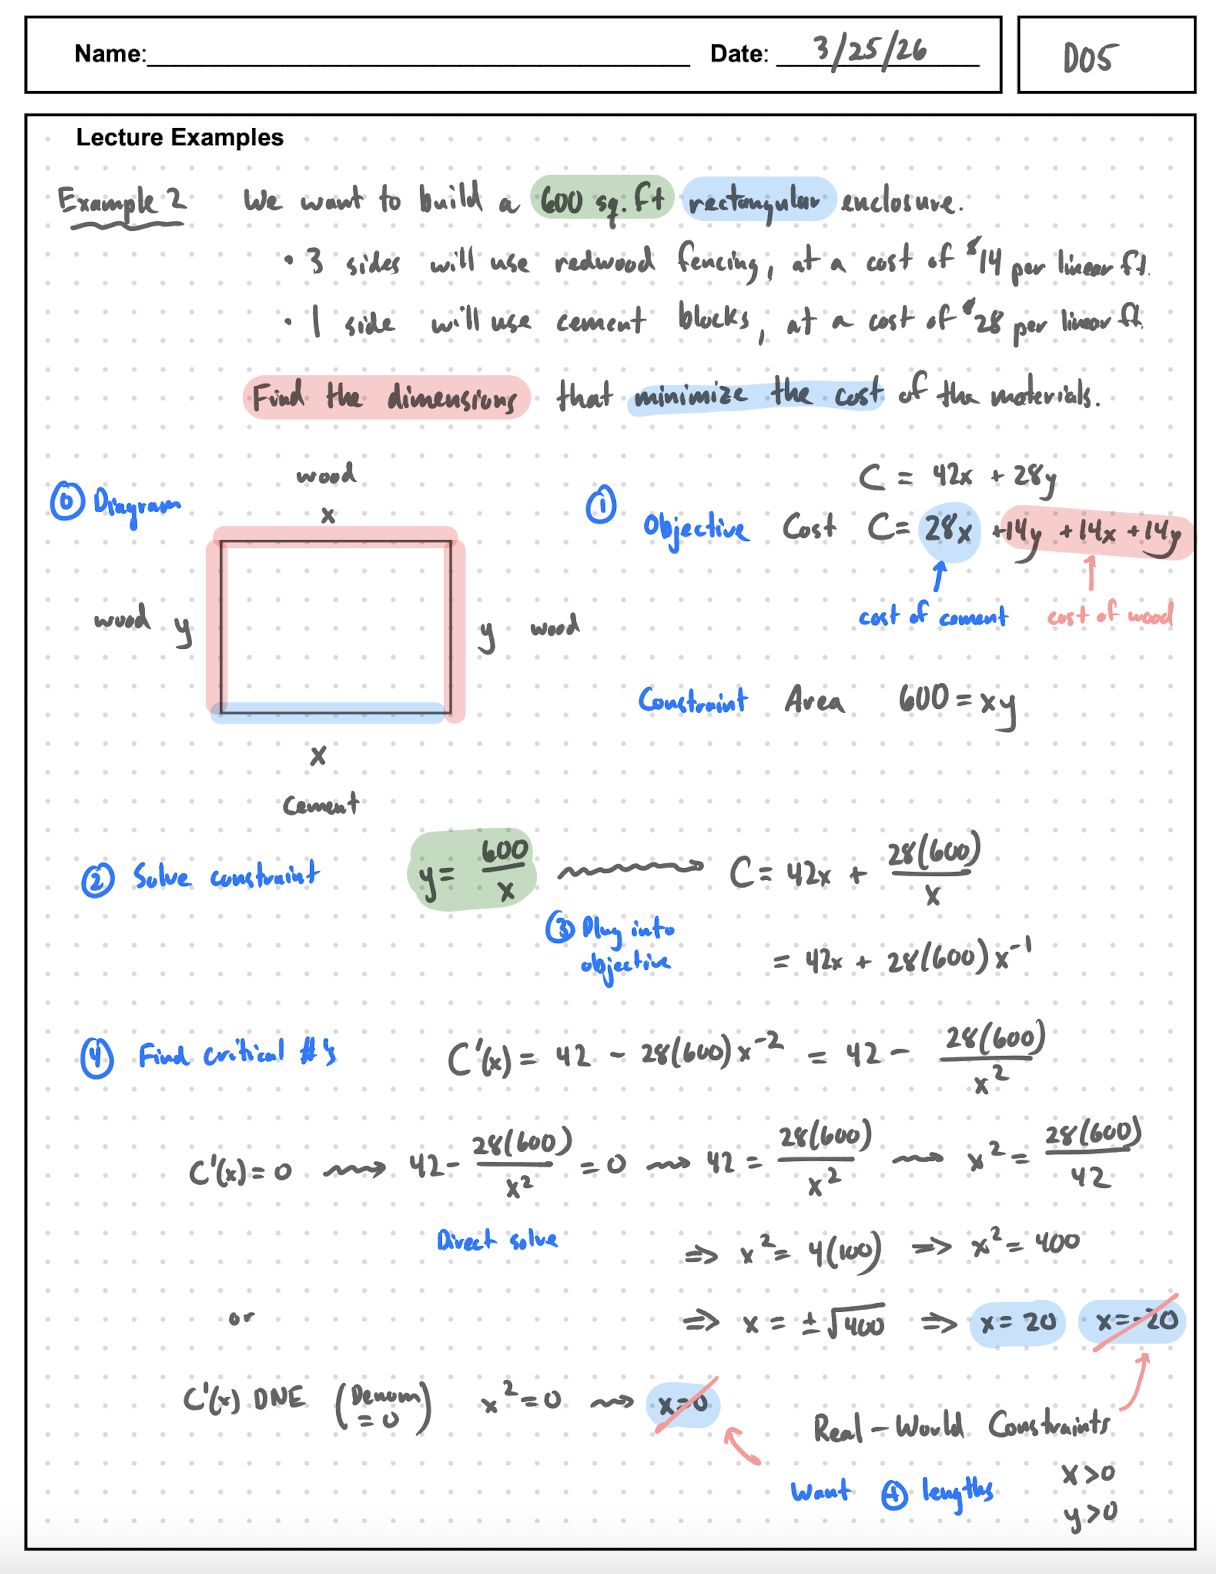 Name: Date: 3/25/26 D05
Lecture Examples
Example 2 We want to build a 600 sq. ft rectangular enclosure.
• 3 sides will use redwood fencing, at a cost of $14 per linear ft.
• 1 side will use cement blocks, at a cost of $28 per linear ft.
Find the dimensions that minimize the cost of the materials.
⓪ Diagram
wood
x
wood y
y wood
x
Cement
① C = 42x + 28y
Objective Cost C = 28x + 14y + 14x + 14y
cost of cement cost of wood
Constraint Area 600 = xy
② Solve constraint y = 600/x ⟿ C = 42x + 28(600)/x
③ Plug into
objective
= 42x + 28(600)x⁻¹
④ Find critical #'s C'(x) = 42 - 28(600)x⁻² = 42 - 28(600)/x²
C'(x) = 0 ⟿ 42 - 28(600)/x² = 0 ⟿ 42 = 28(600)/x² ⟿ x² = 28(600)/42
Direct solve
⇒ x² = 4(100) ⇒ x² = 400
or
⇒ x = ±√400 ⇒ x = 20 x = -20
C'(x) DNE (Denom = 0) x² = 0 ⟿ x = 0
Real-World Constraints
x > 0
y > 0
Want ⊕ lengths